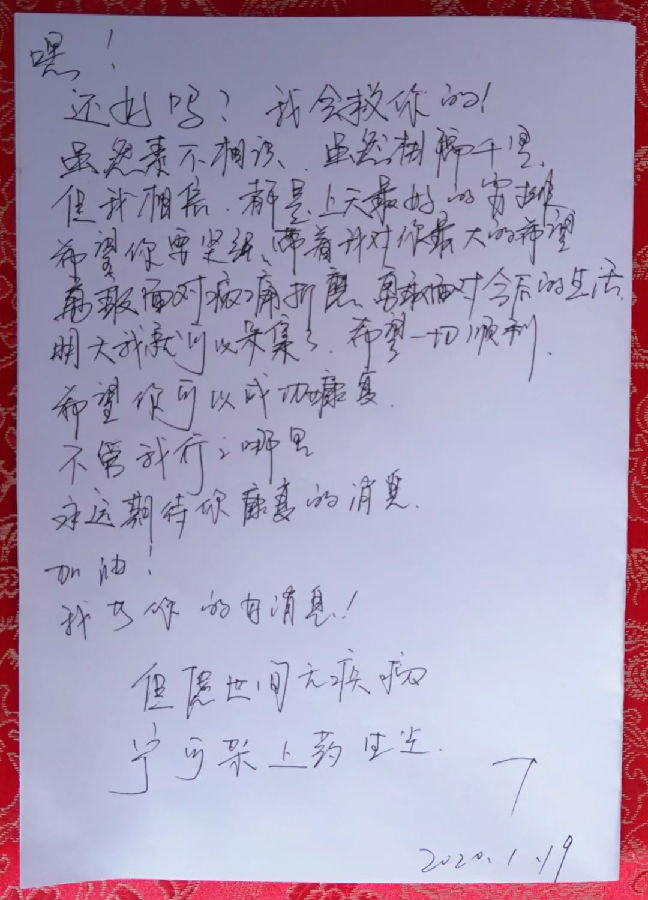 嘿！
还好吗？我会救你的！
虽然素不相识、虽然相隔千里、
但我相信、都是上天最好的安排
希望你要坚强、带着我对你最大的希望
勇敢面对病痛折磨、勇敢面对今后的生活、
明天我就可以采集了、希望一切顺利、
希望你可以成功康复、
不管我行之哪里
永远期待你康复的消息、
加油！
我 你的 消息！
但愿世间无疾病
宁可架上药生尘、
2020.1.19